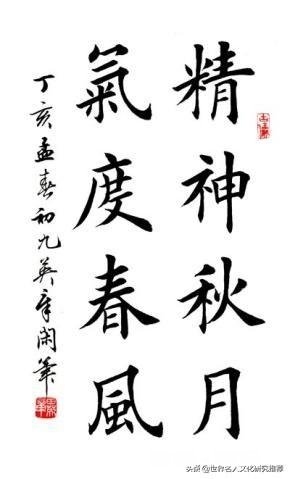 精神秋月
氣度春風
丁亥孟春初九英章闲筆
头条 @世界名人文化研究推荐